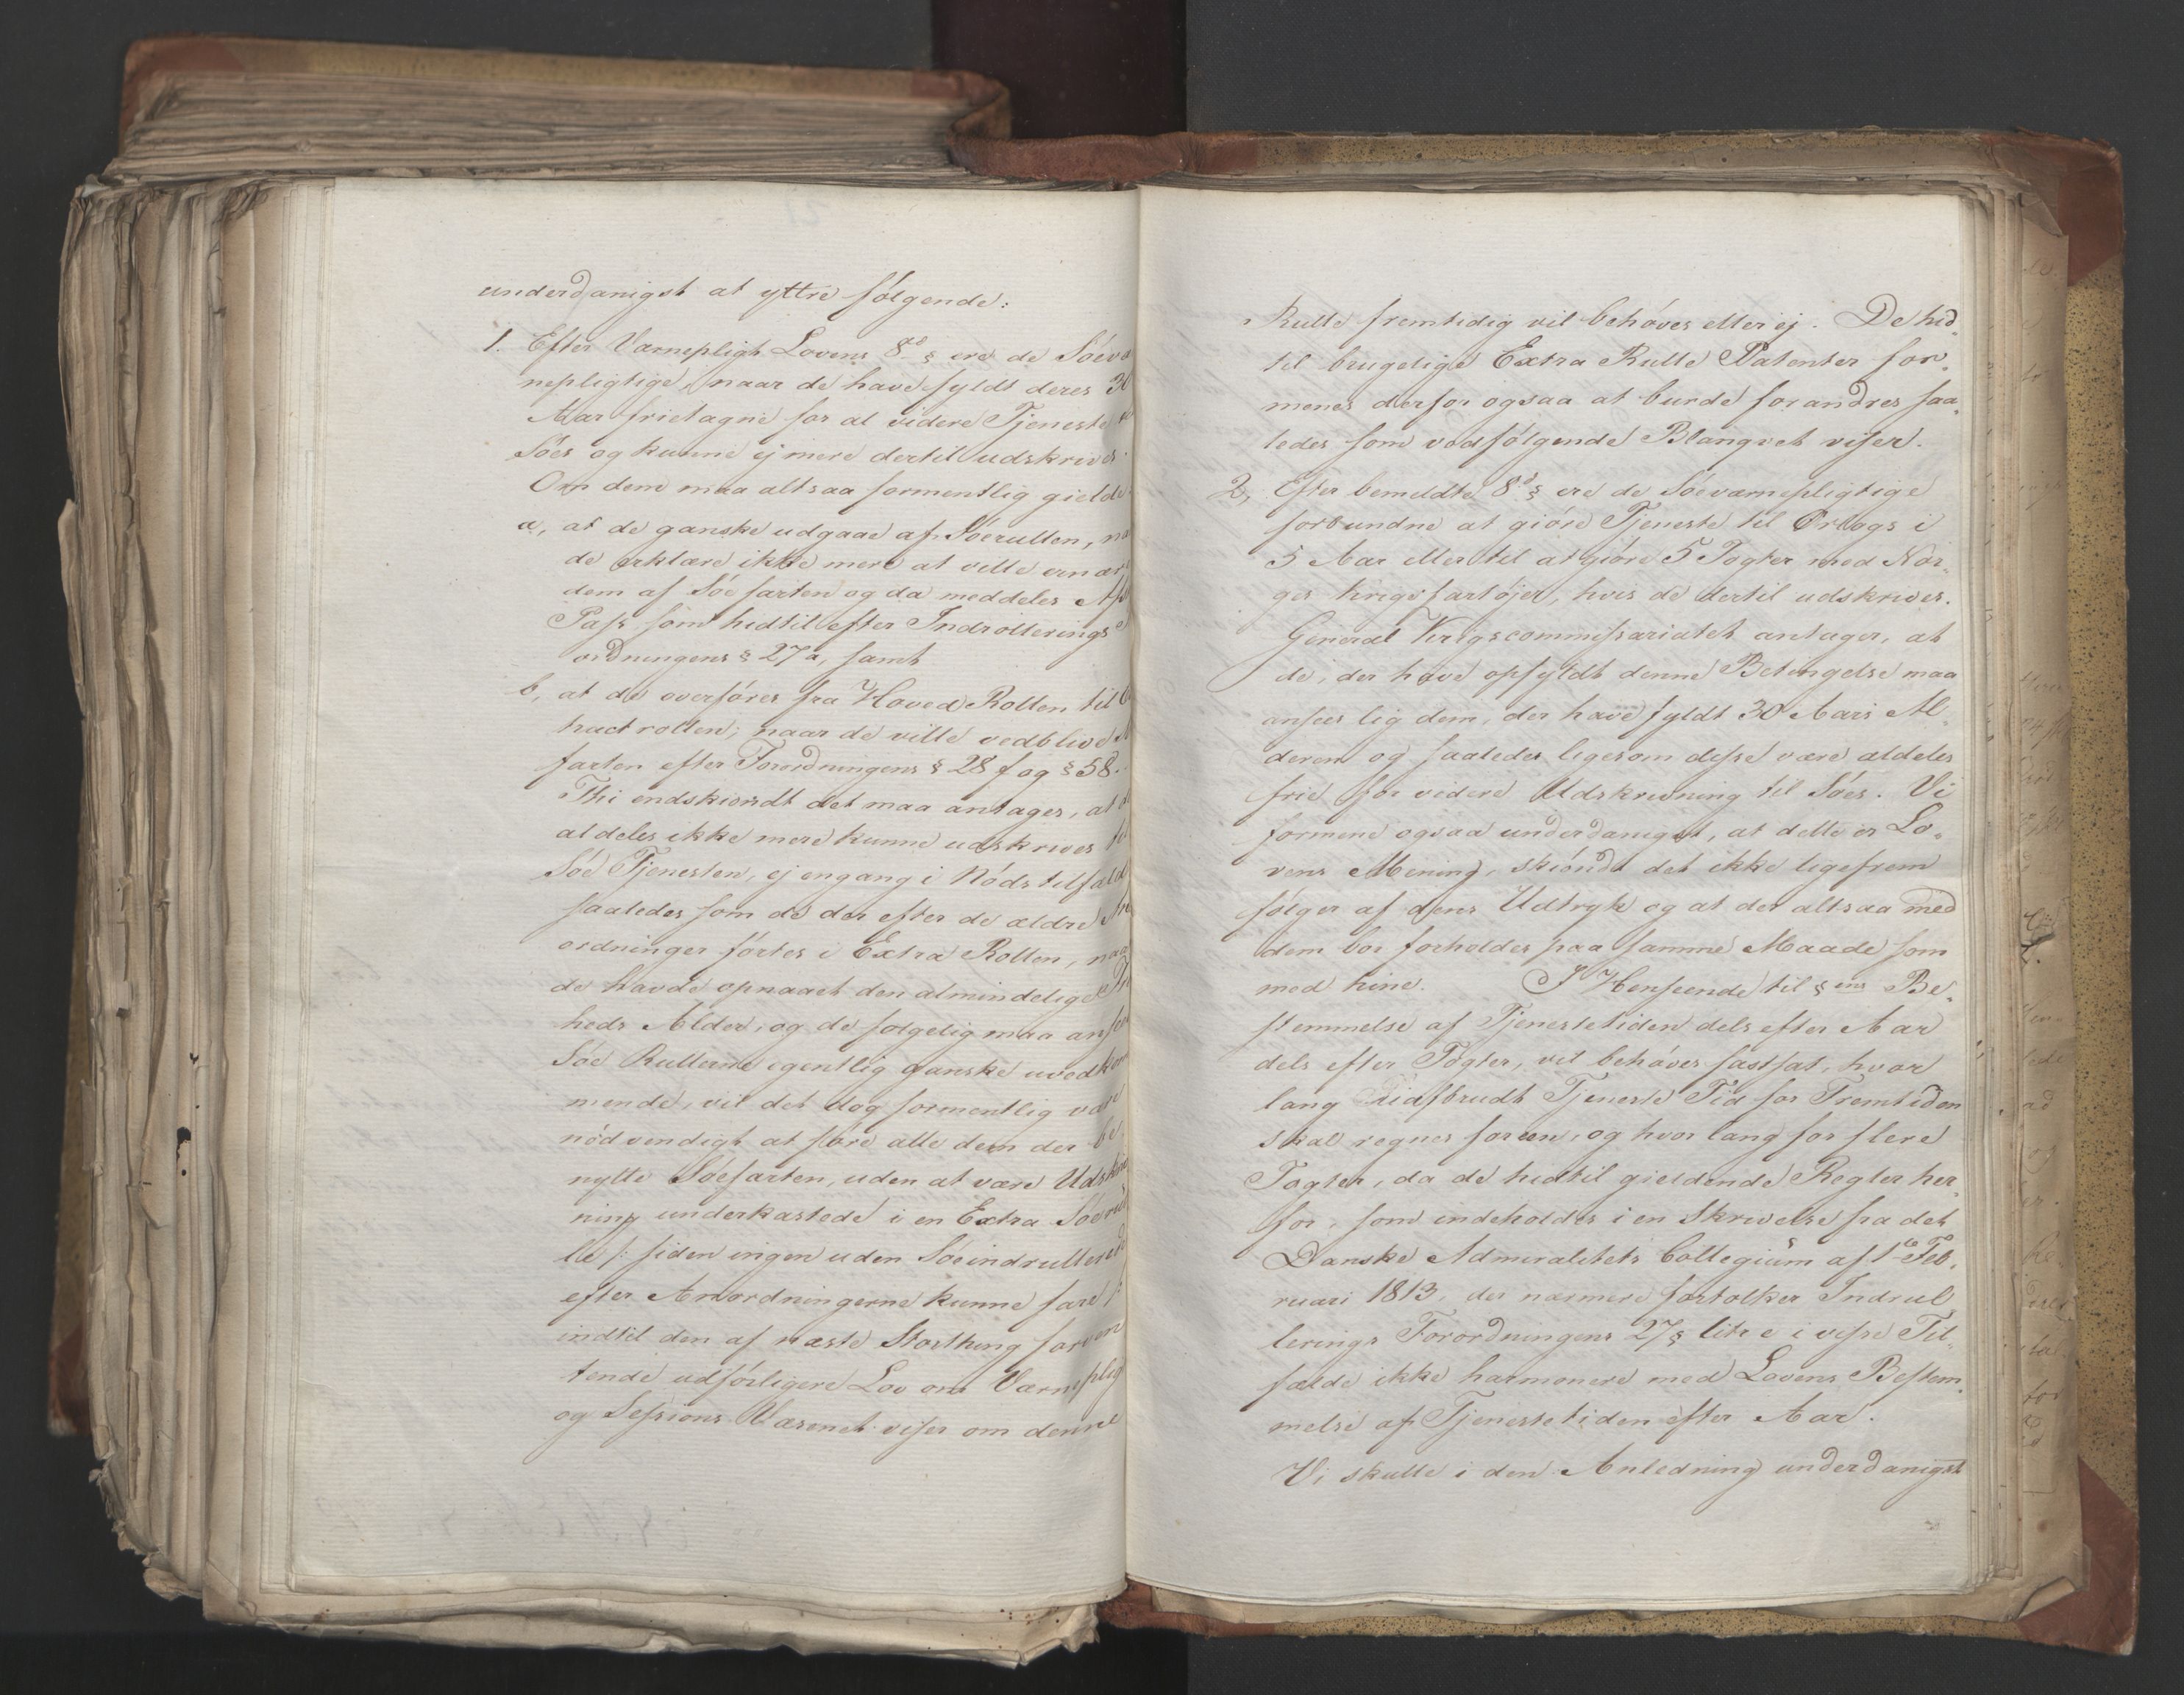 underdanigst at yttre følgende:
1. Efter Værnepligts Lovens 8de § ere de Søevær
nepligtige, naar de have fyldt deres 30
Aar frietagne for al videre Tjeneste
Søes og kunne ej mere dertil udskrives.
Om dem maa altsaa formentlig gielde
a, at de ganske udgaae af Søerullen, na
de erklære ikke mere at ville ernær
dem af Søefarten og da meddeles
Pass som hidtil efter Indrollerings
ordningens § 27 a, samt
b, at de overføres fra Hoved Rollen til
tract rollen, naar de ville vedblive
farten efter Forordningens § 28 f og § 58.
Thi endskiøndt det maa antages, at
aldeles ikke mere kunne udskrives til
Søe Tjenesten, ej engang i Nøds tilfæld
saaledes som de der efter de ældre
ordninger førtes i Extra Rollen, naar
de havde opnaaet den almindelige
heds Alder, og de følgelig maa ansees
Søe Rullerne egentlig ganske uvedkom
mende, vil det dog formentlig være
nødvendigt at føre alle dem der be,
nytte Søefarten, uden at være Udskriv
ning underkastede i en Extra Søerul
le /: siden ingen uden Søeindrullerede
efter Anordningerne kunne fare :/
indtil den af næste Storthing forven
tende udførligere Lov om Værneplig
og Sessions Væsenet viser om denne
Rulle fremtidig vil behøves eller ej. De hid,
til brugelige Extra Rulle Patenter for,
menes derfor ogsaa at burde forandres saa,
ledes som vedfølgende Blanqvet viser.
2, Efter bemeldte 8de § ere de Søeværnepligtige
forbundne at giøre Tjeneste til Orlogs i
5 Aar eller til at giøre 5 Togter med Nor,
ges Krigsfartøjer, hvis de dertil udskrives.
General Krigscommissariatet antager, at
de, der have opfyldt denne Betingelse maa
ansees lig dem, der have fyldt 30 Aars Al,
deren og saaledes ligesom disse være aldeles
frie for videre Udskrivning til Søes. Vi
formene ogsaa underdanigst, at dette er Lo,
vens Mening, skiøndt det ikke ligefrem
følger af dens Udtryk og at der altsaa med
dem bør forholdes paa samme Maade som
med hine. I Henseende til § ens Be,
stemmelse af Tjenestetiden dels efter Aar
dels efter Togter, vil behøves fastsat, hvor
lang uafbrudt Tjeneste Tid for Fremtiden
skal regnes for een, og hvor lang for flere
Togter, da de hidtil gieldende Regler her,
for, som indeholdes i en Skrivelse fra det
Danske Admiralitets Collegium af 1te Feb,
ruari 1813, der nærmere fortolker Indrul
lerings Forordningens 27 § litr e i visse Til,
fælde ikke harmonere med Lovens Bestem,
melse af Tjenestetiden efter Aar.
Vi skulle i den Anledning underdanigst